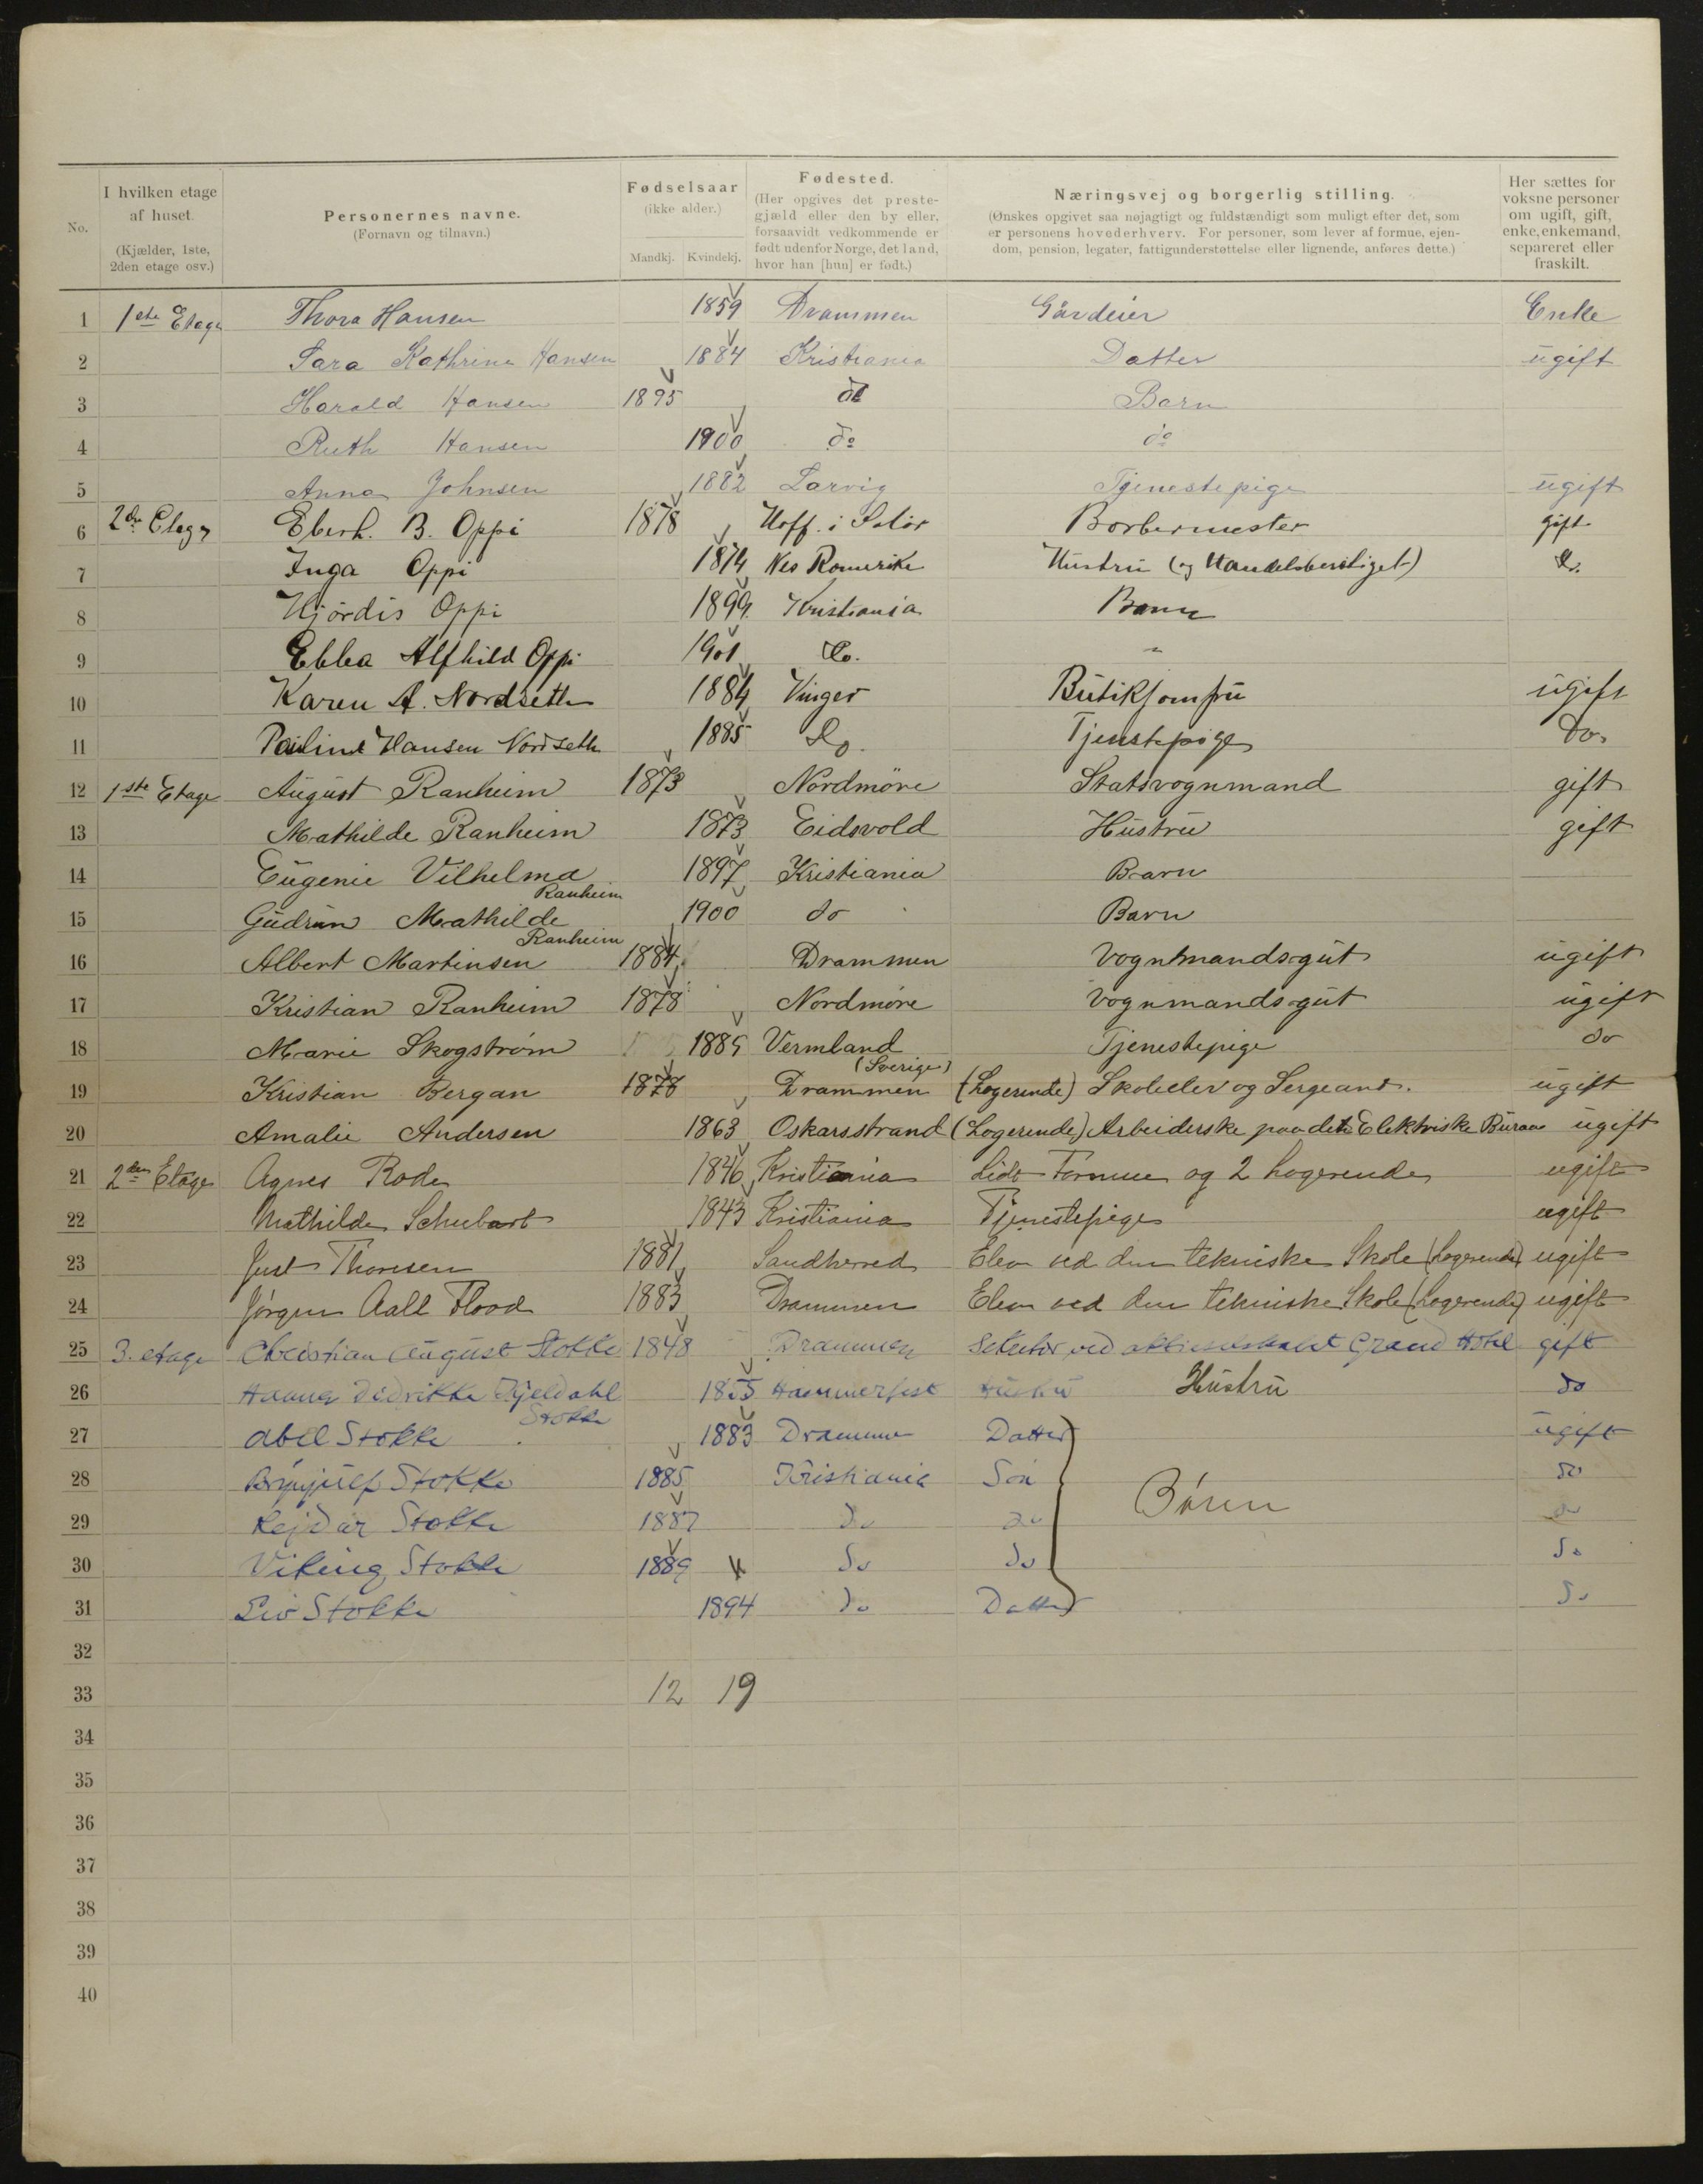 No.
I hvilken etage af huset. (Kjælder, 1ste, 2den etage osv.)
Personernes navne. (Fornavn og tilnavn.)
Fødselsaar (ikke alder.) Mandkj. Kvindekj.
Fødested. (Her opgives det prestegjæld eller den by eller, forsaavidt vedkommende er født udenfor Norge, det land, hvor han [hun] er født.)
Næringsvej og borgerlig stilling. (Ønskes opgivet saa nøjagtigt og fuldstændigt som muligt efter det, som er personens hovederhverv. For personer, som lever af formue, ejendom, pension, legater, fattigunderstøttelse eller lignende, anføres dette.)
Her sættes for voksne personer om ugift, gift, enke, enkemand, separeret eller fraskilt.
1 1ste Etage Thora Hansen 1859 Drammen Gårdeier Enke
2 Sara Kathrine Hansen 1884 Kristiania Datter ugift
3 Harald Hansen 1895 do Barn
4 Ruth Hansen 1900 do do
5 Anna Johnsen 1882 Larvig Tjenestepige ugift
6 2den Etage Eberh. B. Oppi 1878 Hoff. i Solør Barbermester gift
7 Inga Oppi 1874 Nes Romerike Hustru (og Handelsberetiget) do.
8 Hjördis Oppi 1899 Kristiania Barn
9 Ebba Alfhild Oppi 1901 Do. "
10 Karen A. Nordseth 1884 Vinger Butikjomfru ugift
11 Pauline Hansen Nordseth 1885 Do. Tjenstepige do.
12 1ste Etage August Ranheim 1873 Nordmøre Statsvognmand gift
13 Mathilde Ranheim 1873 Eidsvold Hustru gift
14 Eugenie Vilhelma Ranheim 1897 Kristiania Barn
15 Gudrun Mathilde Ranheim 1900 do Barn
16 Albert Martinsen 1884 Drammen Vognmandsgut ugift
17 Kristian Ranheim 1878 Nordmøre Vognmandsgut ugift
18 Marie Skogstrøm 1885 Vermland (Sverige) Tjenestepige do
19 Kristian Bergan 1878 Drammen (Logerende) Skoleelev og Sergeant. ugift
20 Amalie Andersen 1863 Oskarsstrand (Logerende) Arbeiderske paa det Elektriske Bureau ugift
21 2den Etage Agnes Rode 1846 Kristiania Lidt Formue og 2 Logerende ugift
22 Mathilde Schubart 1843 Kristiania Tjenestepige ugift
23 Just Thoresen 1881 Sandherred Elev ved den tekniske Skole (Logerende) ugift
24 Jørgen Aall Flood 1883 Drammen Elev ved den tekniske Skole (Logerende) ugift
25 3. etage Christian August Stokke 1848 Drammen ved aktieselskabet Grand Hotel gift
26 Hanna Didrikke Kjeldahl Stokke 1855 Hammerfest Hustru Hustru do
27 Abel Stokke 1883 Drammen Datter ugift
28 Brynjulf Stokke 1885 Kristiania Søn do
Børn
29 Rejdar Stokke 1887 do do do
30 Viking Stokke 1889 do do do
31 Liv Stokke 1894 do Datter do
32
33 12 19
34
35
36
37
38
39
40